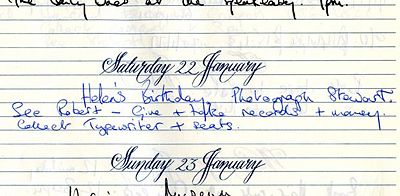 The only ones at the Speakeasy. 1pm.
Saturday 22 January
Helen's Birthday. Photograph Stewart.
See Robert – Give + take records + money.
Collect Typewriter + seats.
Sunday 23 January